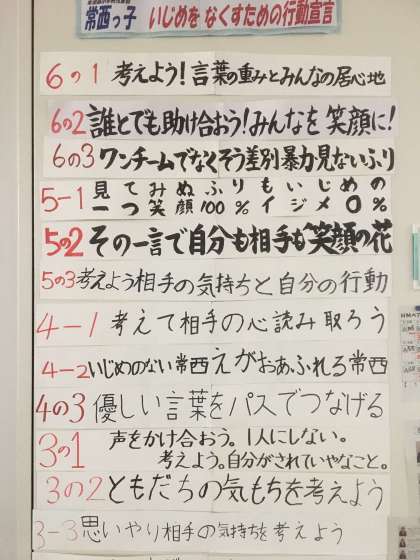 常西っ子 いじめを なくすための行動宣言
6の1 考えよう！言葉の重みとみんなの居心地
6の2 誰とでも助け合おう！みんなを 笑顔に！
6の3 ワンチームでなくそう差別暴力見ないふり
5-1 見てみぬふりもいじめの
一つ笑顔100%イジメ0%
5の2 その一言で自分も相手も笑顔の花
5の3 考えよう相手の気持ちと自分の行動
4-1 考えて相手の心読み取ろう
4-2 いじめのない常西えがおあふれる常西
4の3 優しい言葉をパスでつなげる
3の1 声をかけ合おう。1人にしない。
考えよう。自分がされていやなこと。
3の2 ともだちの気もちを考えよう
3-3 思いやり相手の気持ちを考えよう